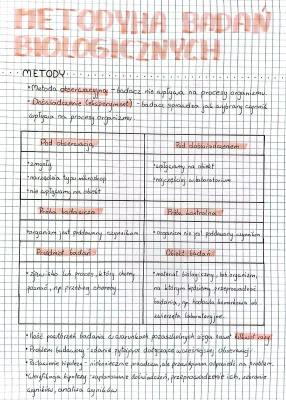 METODYKA BADAŃ
BIOLOGICZNYCH
METODY
• Metoda obserwacyjna - badacz nie wpływa na procesy organizmu.
• Doświadczenie (eksperyment) - badacz sprawdza jak wybrany czynnik
wpływa na procesy organizmu.
Pod obserwacją
Pod doświadczeniem
• zmysły
• narzędzia typu mikroskop
• nie wpływamy na obiekt
• wpływamy na obiekt
• najczęściej w laboratorium
Próba badawcza
Próba kontrolna
• organizm jest poddawany czynnikom
• organizm nie jest poddawany czynnikom
Przedmiot badań
Obiekt badań
• zjawisko lub proces, który chcemy
poznać, np. przebieg choroby
• materiał biologiczny, lub organizm,
na którym będziemy przeprowadzać
badania, np. hodowla komórkowa lub
zwierzęta laboratoryjne.
• Ilość powtórzeń badania w warunkach pozaszkolnych sięga nawet kilkuset razy.
• Problem badawczy - zdanie pytające dotyczące wcześniejszej obserwacji
• Postawienie hipotezy - nie koniecznie prawdziwa, ale prawdopodobna odpowiedź na problem.
• Weryfikacja hipotezy - zaplanowanie doświadczeń, przeprowadzenie ich, zebranie
wyników, analiza wyników